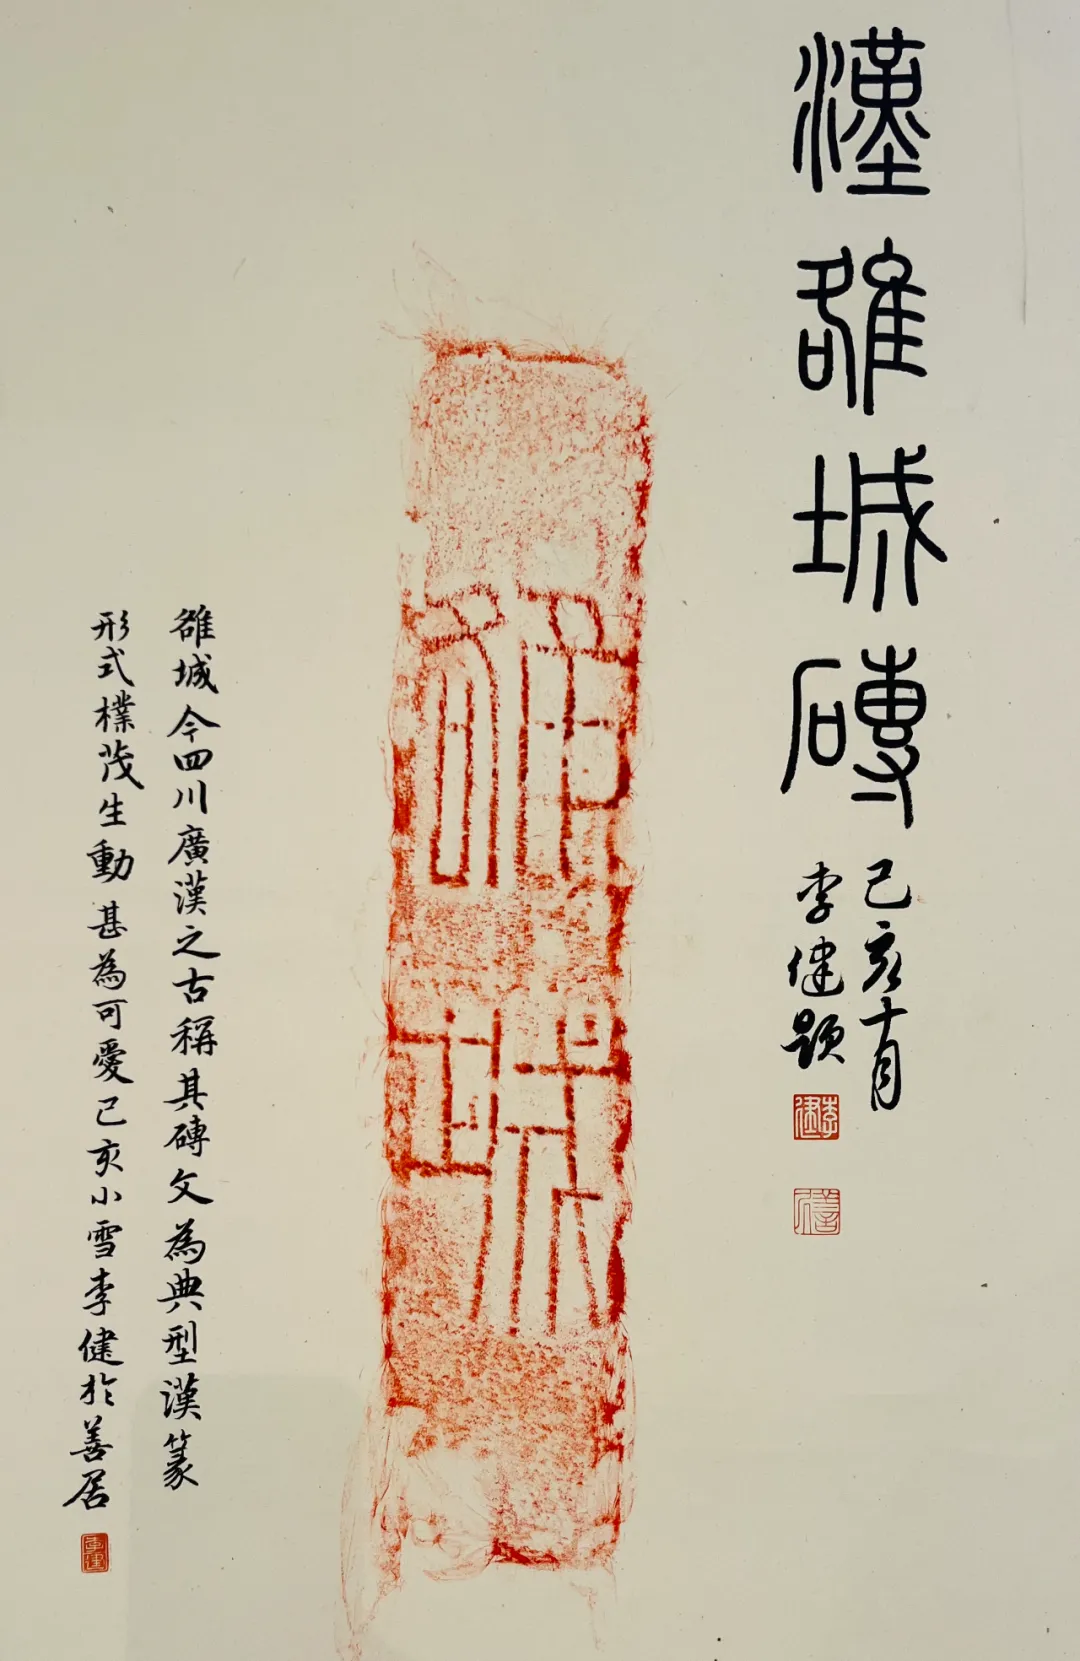 漢雒城磚
己亥十月
李健題
李健
雒城今四川廣漢之古稱其磚文為典型漢篆
形式樸茂生動甚為可愛己亥小雪李健於善居
李健